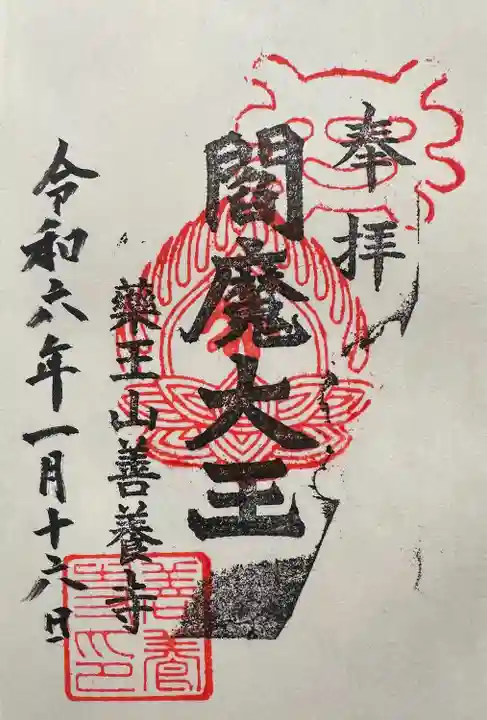 奉拝
閻魔大王
藥王山善養寺
令和六年一月十六日